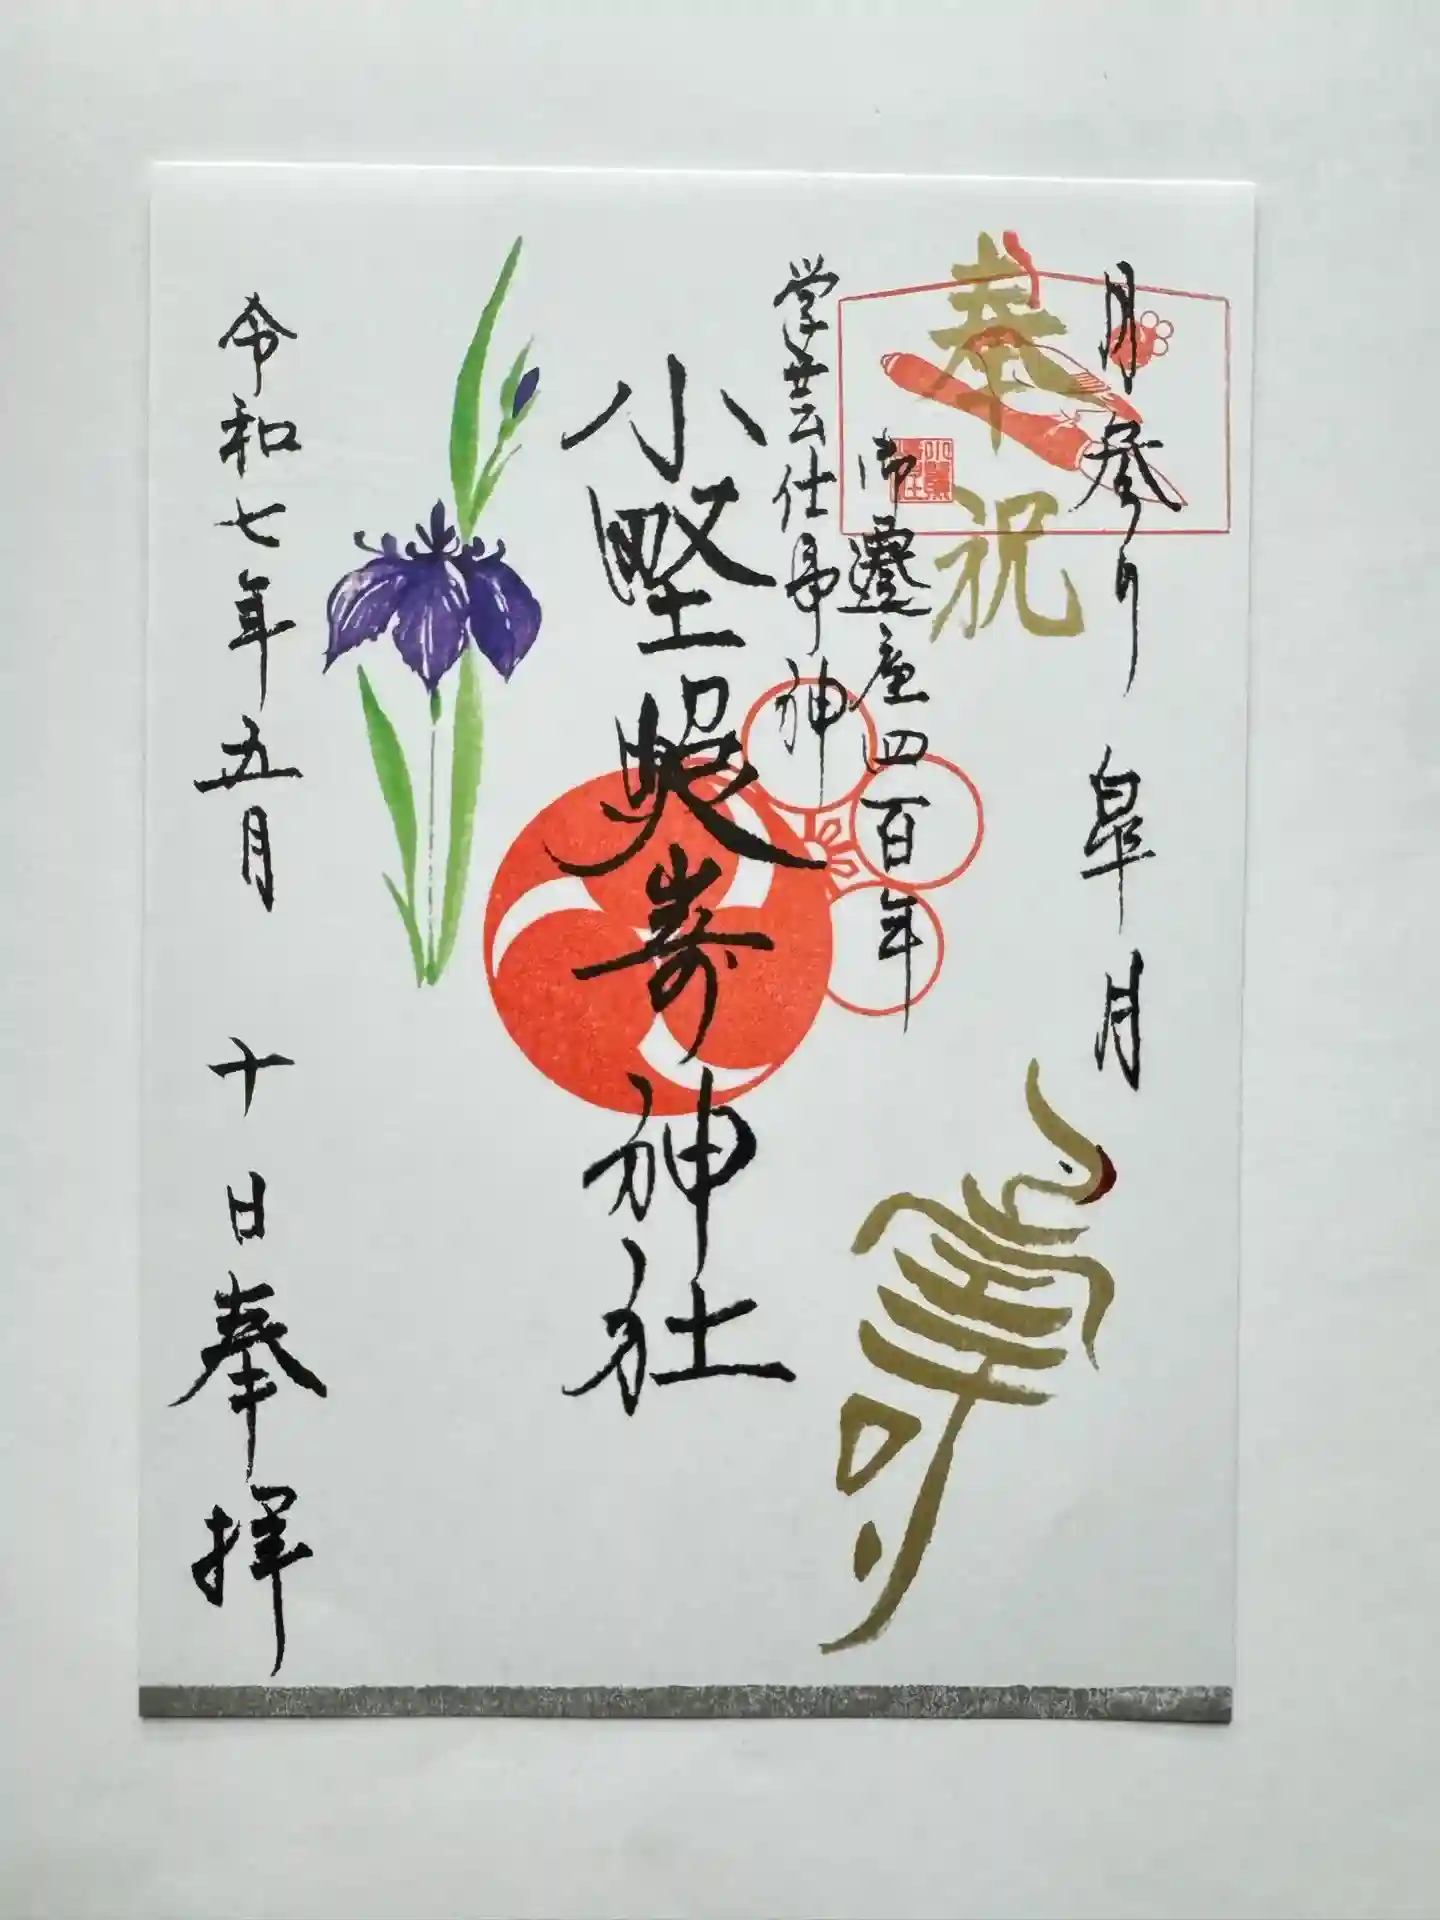 月参り 皐月
奉祝
壽
御遷座四百年
学芸仕事神
小野照嵜神社
令和七年五月 十日奉拝